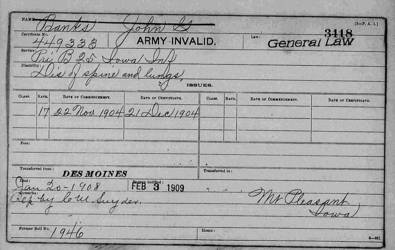 NAME Banks John G
Certificate No. 449333 ARMY INVALID. Law: 3118 General Law
Service: Pri, B 25 Iowa Inf
Disability: Dis of spine and lungs
ISSUES.
CLASS. RATE. DATE OF COMMENCEMENT. DATE OF CERTIFICATE. CLASS. RATE. DATE OF COMMENCEMENT. DATE OF CERTIFICATE.
17 22 Nov 1904 21 Dec 1904
Fees:
Transferred from: DES MOINES Transferred to:
Died: Jan 20-1908 Bureau notified: FEB 3 1909
Remarks: Rep by
Mt Pleasant
Iowa
Former Roll No. 1946 Home: